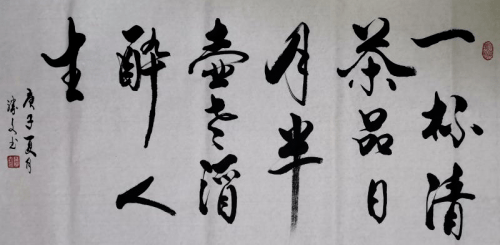 一杯清
茶品日
月半
壶老酒
醉人
生
庚子夏月
文书